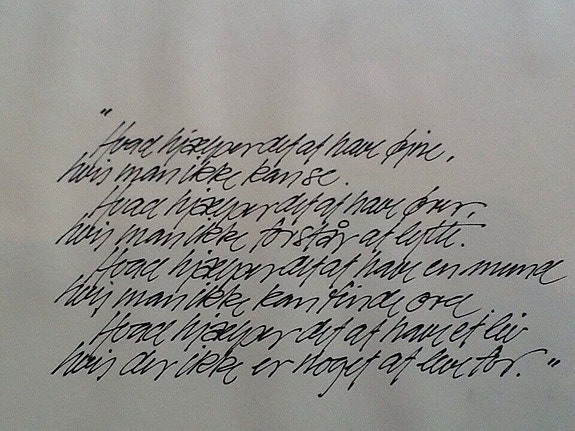 "
Hvad hjælper det at have øjne,
hvis man ikke kan se.
Hvad hjælper det at have ører,
hvis man ikke forstår at lytte.
Hvad hjælper det at have en mund
hvis man ikke kan finde ord.
Hvad hjælper det at have et liv
hvis der ikke er noget at leve for. "